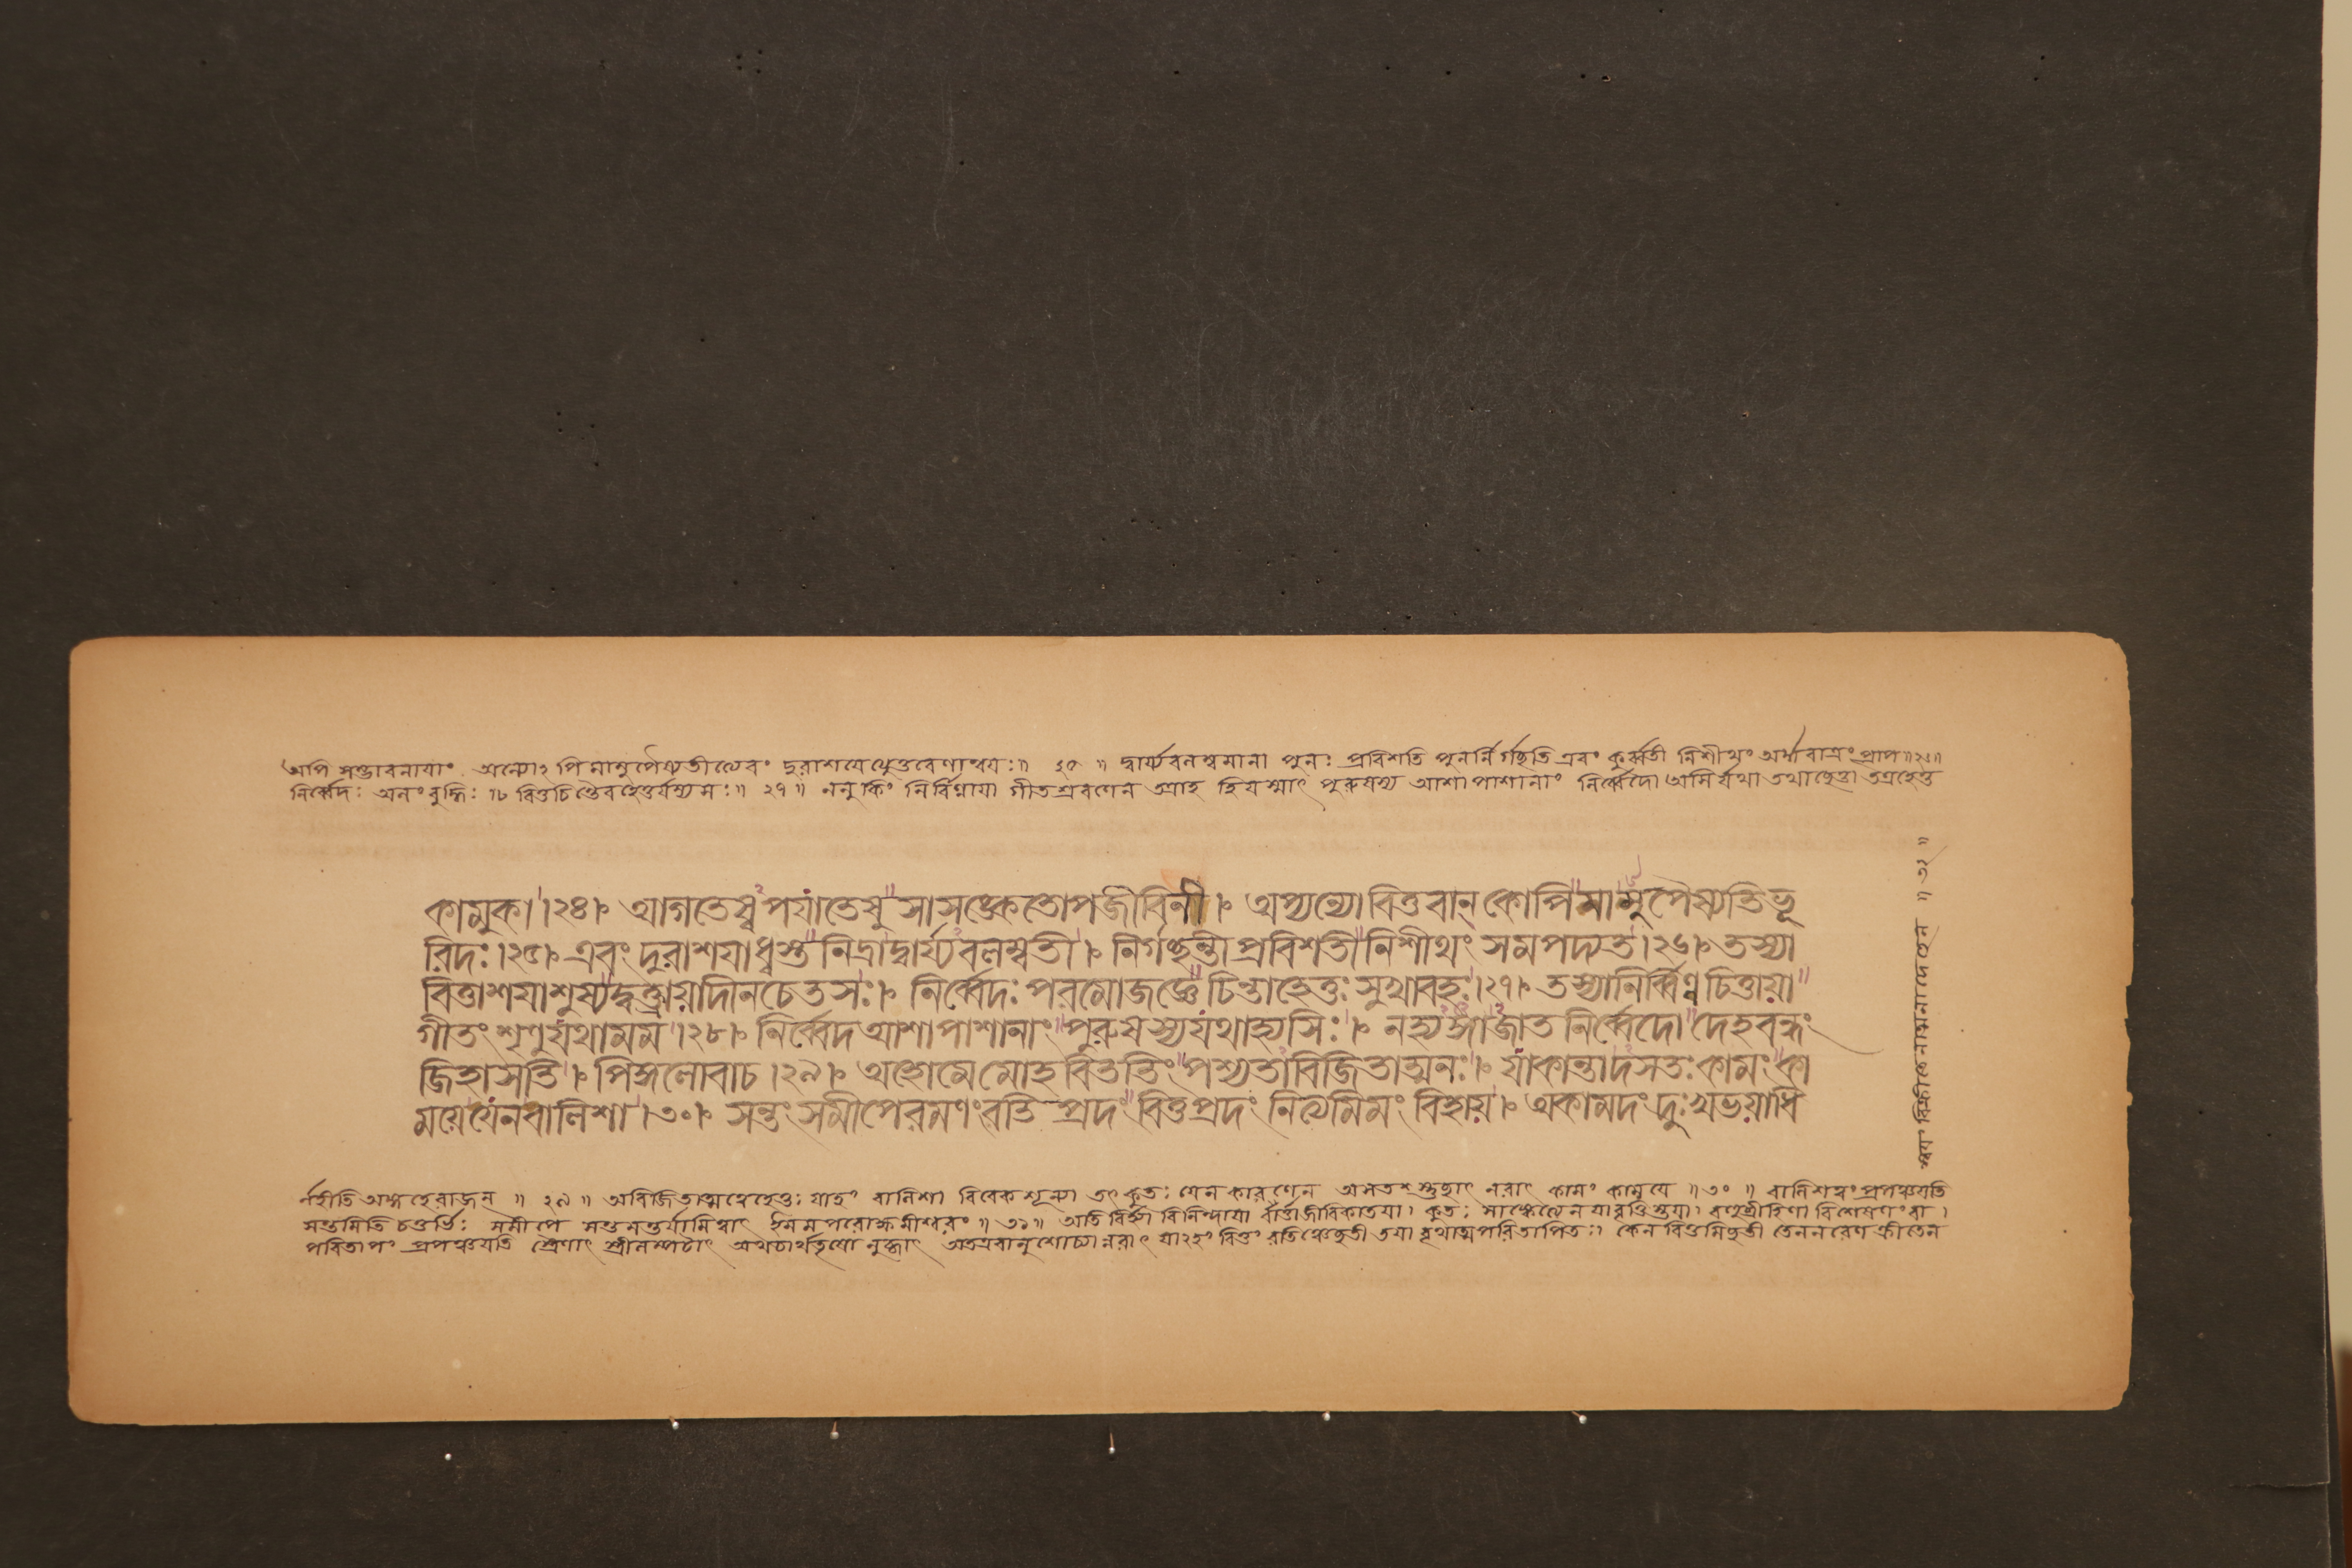 অপি সম্ভাবনায়াং অন্যোঽপি মামুপৈষ্যতীত্যেবং দুরাশয়েত্যুত্তরেণান্বয়ঃ॥ ২৫ ॥ দ্বার্য্যবলম্বমানা পুনঃ প্রবিশতি পুনর্নির্গচ্ছতি এবং কুর্ব্বতী নিশীথং অর্ধরাত্রং প্রাপ॥২৬॥
নির্ব্বেদঃ অলং বুদ্ধিঃ বিত্তচিন্তৈব হেতুর্যস্য সঃ॥ ২৭॥ ননু কিং নির্বিণ্ণায়া গীতশ্রবণেন অত্রাহ হি যস্মাৎ পুরুষস্য আশাপাশানাং নির্ব্বেদো অসির্যথা তথা ছেত্তা তত্রহেতু
কামুকা।২৪। আগতেষ্বপযাতেষু সাসঙ্কেতোপজীবিনী। অপ্যন্যো বিত্তবান্ কোপি মামুপৈষ্যতি ভূ
রিদঃ।২৫। এবং দুরাশযাধ্বস্ত নিদ্রাদ্বার্য্যবলম্বতী। নির্গচ্ছন্তী প্রবিশতী নিশীথং সমপদ্যত।২৬। তস্যা
বিত্তাশযাশুষ্যদ্বক্ত্রায়াদীনচেতসঃ। নির্ব্বেদঃ পরমোজজ্ঞে চিন্তাহেতুঃ সুখাবহঃ।২৭। তস্যানির্ব্বিণ্ণচিত্তায়া
গীতং শৃণু যথামম।২৮। নির্ব্বেদ আশাপাশানাং পুরুষস্য যথাহ্যসিঃ। নহ্যঙ্গাজাত নির্ব্বেদো দেহবন্ধং
জিহাসতি। পিঙ্গলোবাচ।২৯। অহোমে মোহ বিততিং পশ্যতাবিজিতাত্মনঃ। যাকান্তাদসতঃ কামং কা
ময়ে যেন বালিশা।৩০। সন্তং সমীপে রমণং রতি প্রদং বিত্তপ্রদং নিত্যমিমং বিহায়। অকামদং দুঃখভয়াধি
র্নহীতি অঙ্গ হে রাজন্ ॥ ২৯ ॥ অবিজিতাত্মত্বে হেতুঃ যাহং বালিশা বিবেকশূন্যা তৎ কুতঃ যেন কারণেন অসতস্তুচ্ছাৎ নরাৎ কামং কাময়ে ॥৩০ ॥ বালিশত্বং প্রপঞ্চয়তি
সন্তমিতি চতুর্ভিঃ সমীপে সন্তমন্তর্যামিত্বাৎ ইমমপরোক্ষমীশ্বরং ॥ ৩১॥ অতিবিগর্হ্যা বিনিন্দ্যায়া বার্ত্তা জীবিকা তয়া। কুতঃ সাঙ্কেত্যেন বিশেষণং বা।
পরিতাপং প্রপঞ্চয়তি স্ত্রৈণাৎ স্ত্রীলম্পটাৎ অথচার্থতৃষো লুব্ধাৎ অতএবানুশোচ্যা নরাৎ যাঽহং বিত্তং রতিঞ্চেচ্ছতী তয়া বৃথাত্মপরিতাপিতঃ। কেন বিত্তমিচ্ছতী তেন নরেণ ক্রীতেন
বিক্রীতেনাত্মনা দেহেন ॥ ৩২ ॥